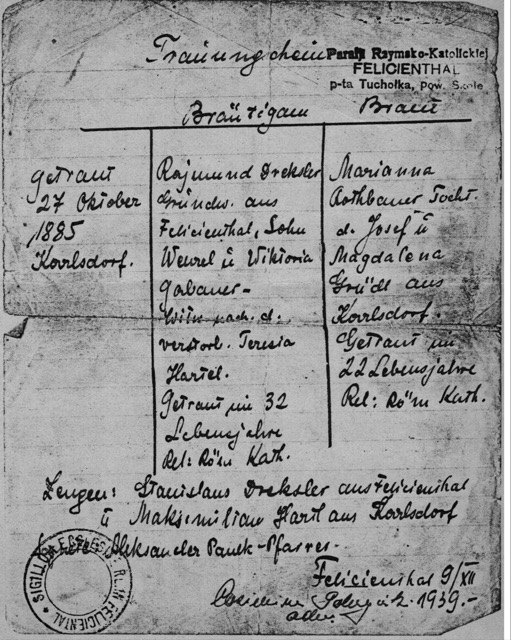 Trauungschein
Parafji Rzymsko-Katolickiej
FELICIENTHAL
p-ta Tuchołka, pow. Skole
Bräutigam
Braut
Getraut
27 Oktober
1885
Karlsdorf.
Rajmund Dreksler
Grundw. aus
Felicienthal, Sohn
Wenzel ü Wiktoria
Gabauer-
Witw. nach. d.
verstorb. Teresia
Hartel.
Getraut im 32
Lebensjahre
Rel: Röm Kath.
Marianna
Rothbauer Tocht.
d. Josef ü
Magdalena
Gründl aus
Karlsdorf.
Getraut im
22 Lebensjahre
Rel: Röm Kath.
Zeugen: Stanislaus Dreksler aus Felicienthal
ü Maksimilian Hartl aus Karlsdorf
Aleksander Panek-Pfarrer.
Felicienthal 9/XII
1939.-
adm.
SIGILLUM ECCLESIAE IN FELICIENTAL